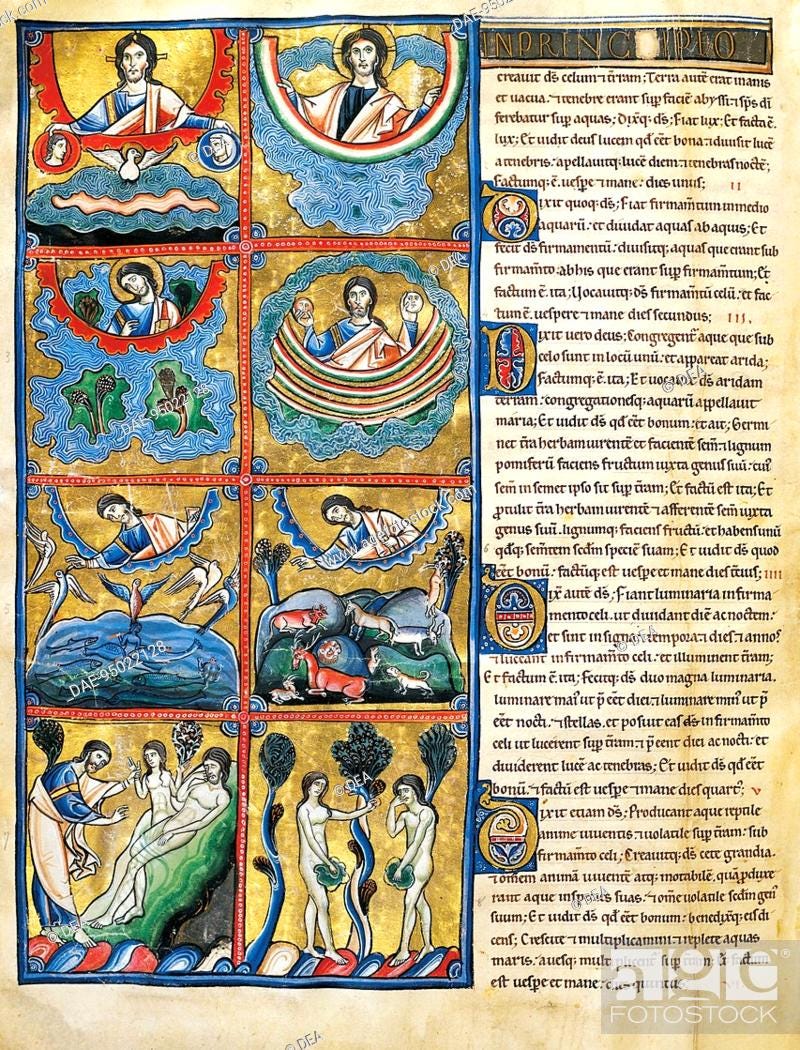 INPRINCIPIO
creavit ds celum ⁊ tram; Terra aute erat inanis
et vacua. ⁊ tenebre erant sup facie abyssi ⁊ sps di
ferebatur sup aquas; Dixq; ds; Fiat lux; Et facta e
lux; Et vidit deus lucem qd eet bona ⁊ divisit luce
a tenebris. apellavitq; luce diem ⁊ tenebras nocte;
factumq; e. vespe ⁊ mane. dies unus; II
Dixit quoq; ds; Fiat firmamentu in medio
aquaru. et dividat aquas ab aquis; Et
fecit ds firmamentu. divisitq; aquas que erant sub
firmamto. ab his que erant sup firmamtum; Et
factum e. ita; Vocavitq; ds firmamtu celu. et fac
tum e. vespere ⁊ mane dies secundus; III.
Dixit vero deus; Congregent aque que sub
celo sunt in locu unu. et appareat arida;
Factumq; e. ita; Et vocavit ds aridam
terram. congregationesq; aquaru appellavit
maria; Et vidit ds qd eet bonum. et ait; Germi
net tra herbam virente et faciente sem ⁊ lignum
pomiferu faciens fructum iuxta genus suu. cui
sem in semet ipso sit sup tram; Et factu est ita; Et
ptulit tra herbam virente ⁊ afferente sem iuxta
genus suu. lignumq; faciens fructu. et habens unu
qdq; semtem scdm specie suam; Et vidit ds quod
eet bonu. factuq; est vespe et mane dies tcius; IIII
Dixit aute ds; Fiant luminaria in firma
mento celi. ut dividant die ac nocte.
et sint in signa ⁊ tempora ⁊ dies ⁊ annos
⁊ luceant in firmamto celi. et illuminent tram;
Et factum e. ita; Fecitq; ds duo magna luminaria.
luminare mai ut p
eet diei. ⁊ luminare min ut p
eet nocti. ⁊ stellas. et posuit eas ds in firmamto
celi ut lucerent sup tram. ⁊ peent diei ac nocti. et
dividerent luce ac tenebras; Et vidit ds qd eet
bonu. ⁊ factu est vespe ⁊ mane dies quart; V
Dixit etiam ds; Producant aque reptile
anime viventis ⁊ volatile sup tram. sub
firmamto celi; Creavitq; ds cete grandia.
⁊ omem anima vivente atq; motabile, qua pduxe
rant aque in species suas. ⁊ ome volatile scdm gen
suum; Et vidit ds qd eet bonum. benedixq; eis di
cens; Crescite ⁊ multiplicamini. ⁊ replete aquas
maris. avesq; multiplicent sup tram. Et factum
est vespe et mane. dies quintus; VI
DAE-95022128
© DEA
www.agefotostock.com
age
FOTOSTOCK